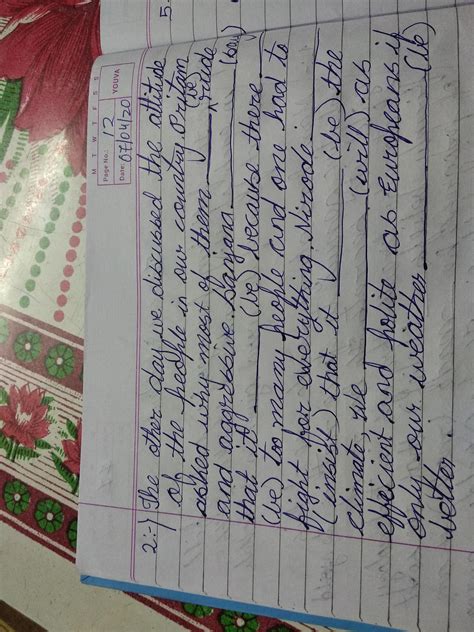 5.
M T W T F S S
Page No.: 12
YOUVA
Date: 07/04/20
2:-) The other day we discussed the attitude
of the people is our country. Pritam
asked why most of them ______ (be) rude
and aggressive. Sanjana ______ (say)
that it ______ (be) because there ______
(be) too many people and one had to
fight for everything. Nirode ______
(insist) that it ______ (be) the
climate, We ______ (will) as
efficient and polite as Europeans if
only our weather ______ (be)
better.